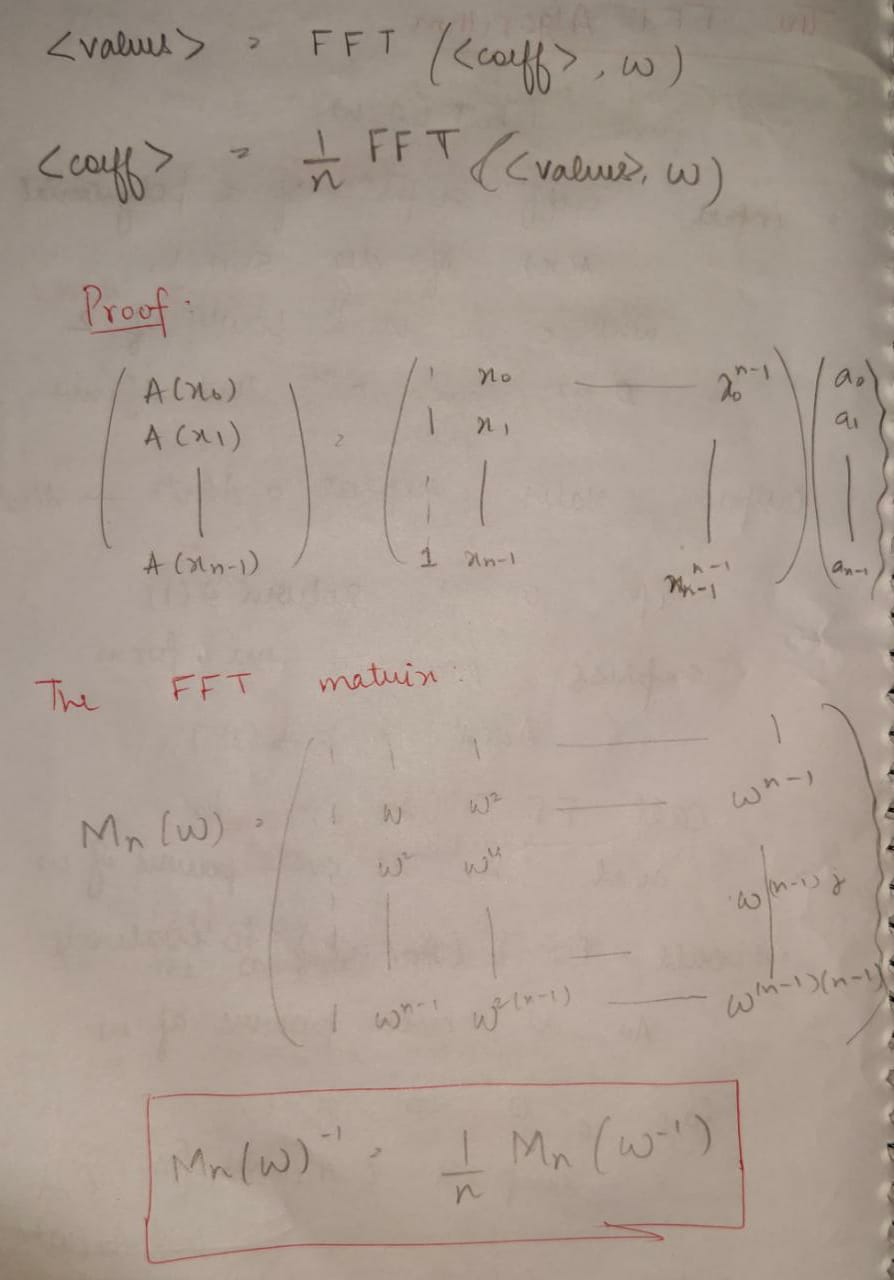 <values> = FFT (<coeff>, ω)
<coeff> = 1/n FFT (<values>, ω)
Proof:
A(x₀) = 1 x₀ — x₀ⁿ⁻¹ a₀
A(x₁) 1 x₁ a₁
| | | |
A(xₙ₋₁) 1 xₙ₋₁ xₙ₋₁ⁿ⁻¹ aₙ₋₁
The FFT matrix:
1 1 1 — 1
Mₙ(ω) = 1 ω ω² — ωⁿ⁻¹
ω² ω⁴ ω⁽ⁿ⁻¹⁾ʲ
1 ωⁿ⁻¹ ω²⁽ⁿ⁻¹⁾ — ω⁽ⁿ⁻¹⁾⁽ⁿ⁻¹⁾
Mₙ(ω)⁻¹ = 1/n Mₙ(ω⁻¹)